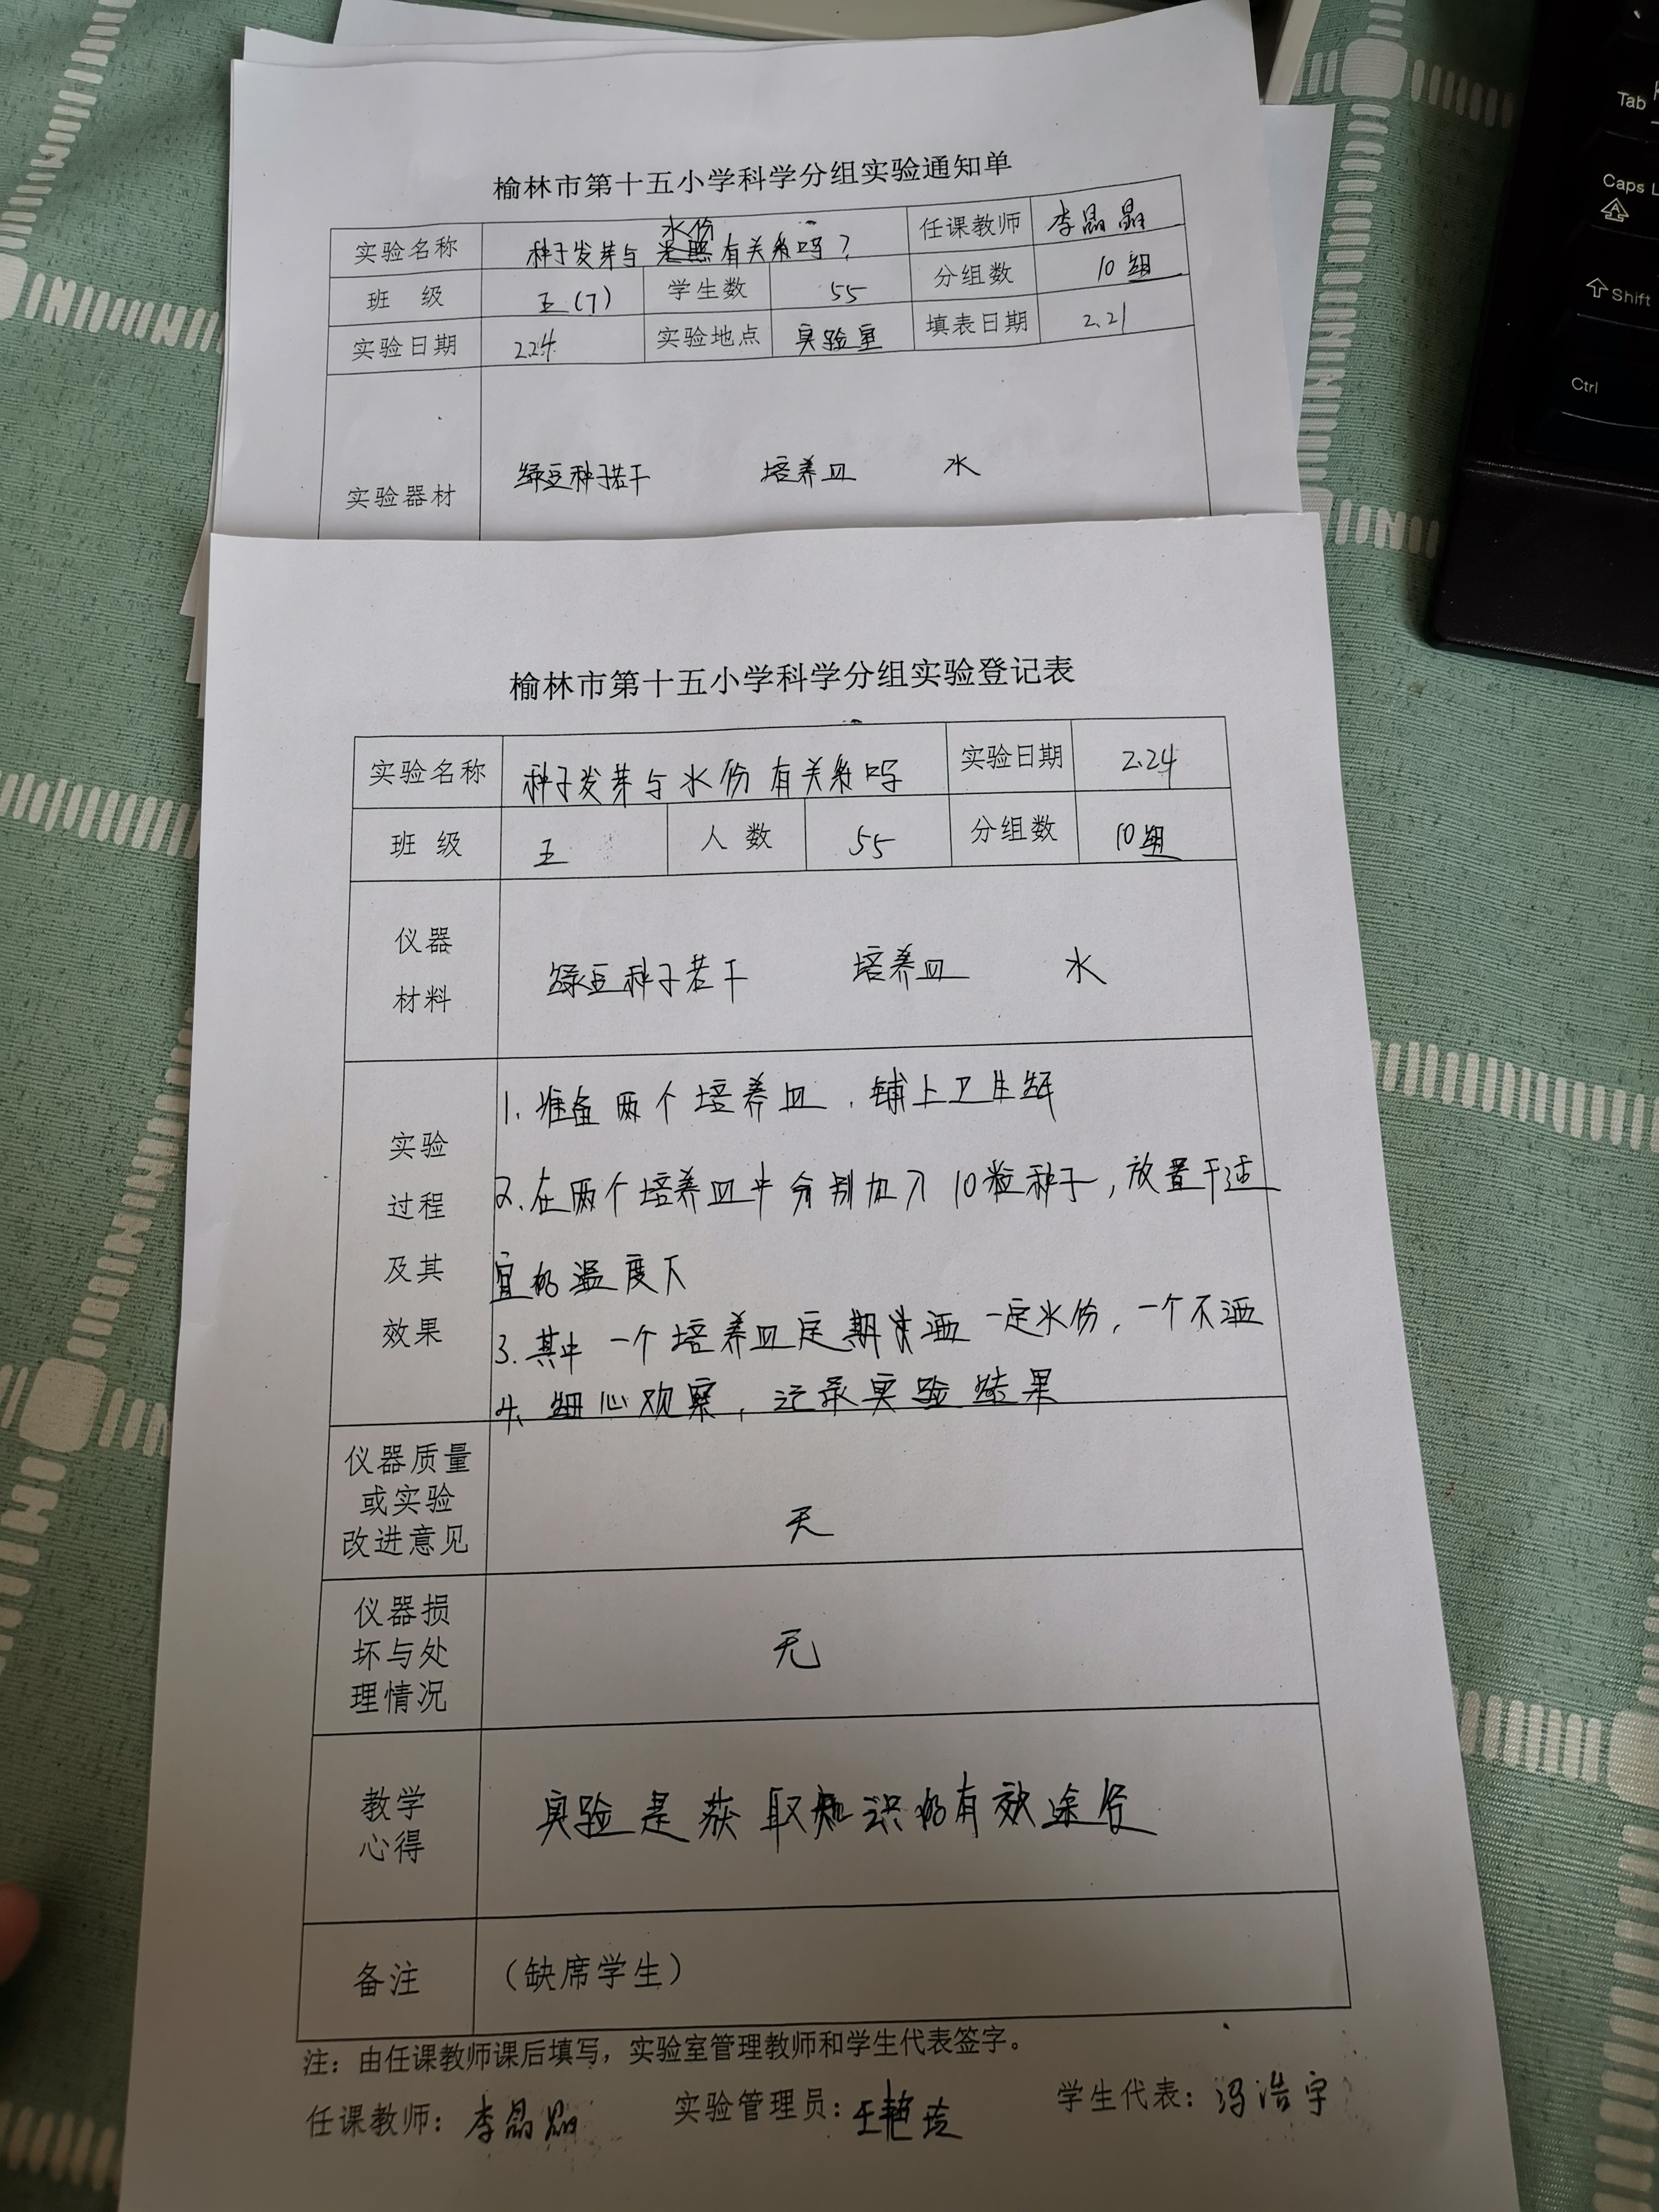 Tab
Caps L
Shift
Ctrl
榆林市第十五小学科学分组实验通知单
实验名称 种子发芽与水份有关系吗? 任课教师 李晶晶
班 级 五(7) 学生数 55 分组数 10组
实验日期 2.24 实验地点 实验室 填表日期 2.21
实验器材 绿豆种子若干 培养皿 水
榆林市第十五小学科学分组实验登记表
实验名称 种子发芽与水份有关系吗 实验日期 2.24
班 级 五 人 数 55 分组数 10组
仪器
材料
绿豆种子若干 培养皿 水
实验
过程
及其
效果
1. 准备两个培养皿,铺上卫生纸
2. 在两个培养皿中分别加入10粒种子,放置于适
宜的温度下
3. 其中一个培养皿定期洒一定水份,一个不洒
4. 细心观察,记录实验结果
仪器质量
或实验
改进意见
无
仪器损
坏与处
理情况
无
教学
心得
实验是获取知识的有效途径
备注 (缺席学生)
注:由任课教师课后填写,实验室管理教师和学生代表签字。
任课教师:李晶晶 实验管理员:王艳 学生代表:冯浩宇